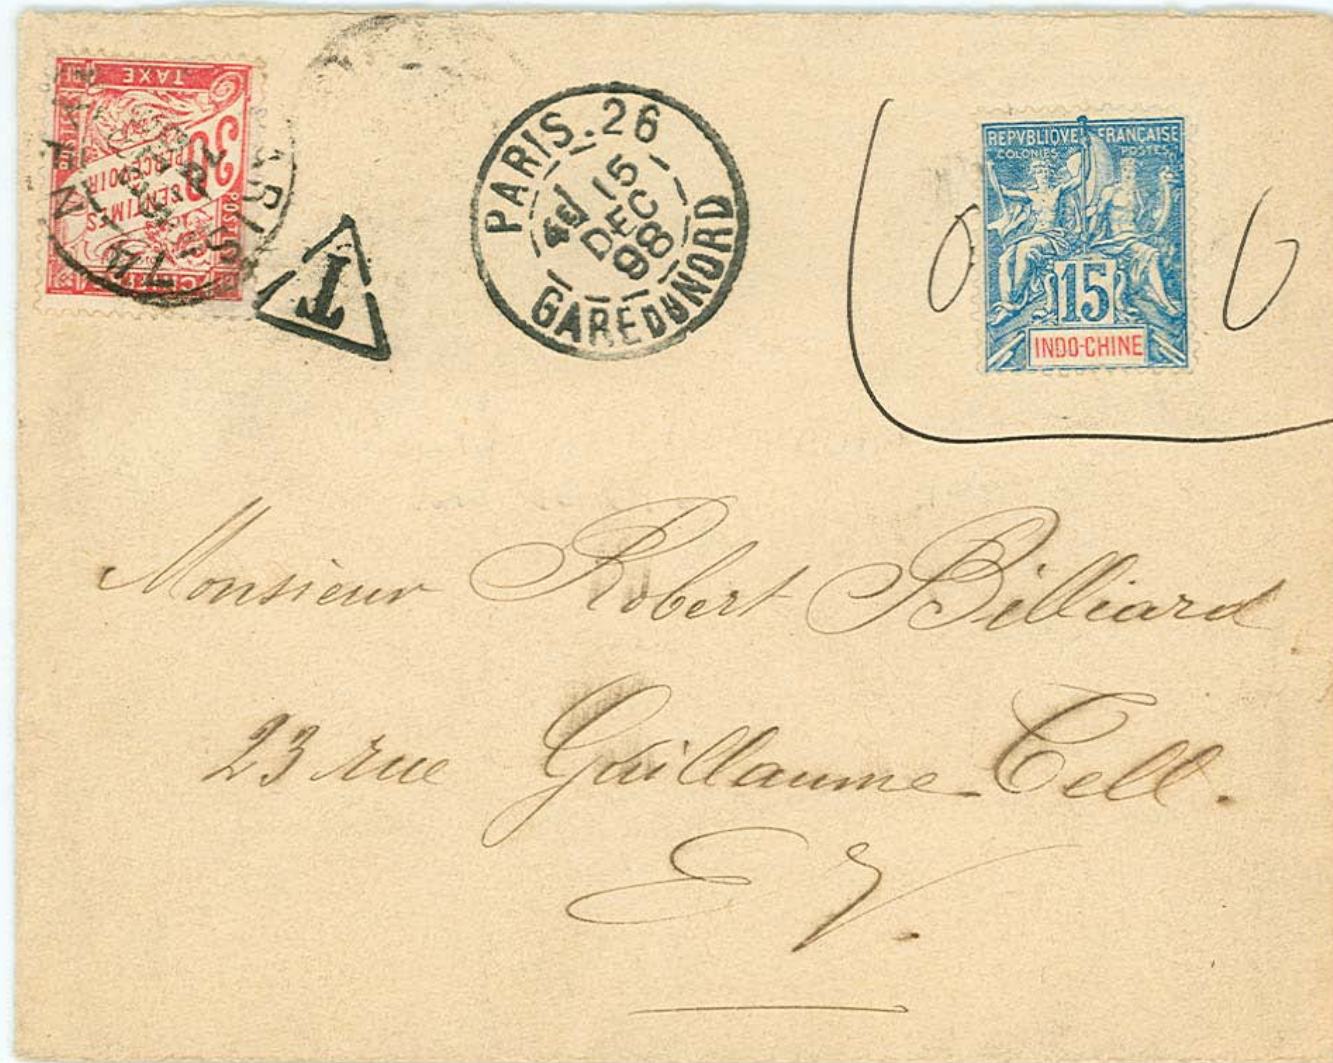 TAXE
30
CENTIMES
A PERCEVOIR
POSTES
T
PARIS. 26
15
DEC
98
GARE DU NORD
REPVBLIQVE FRANÇAISE
COLONIES POSTES
15
INDO-CHINE
0 0
Monsieur Robert Billiard
23 rue Guillaume Tell.
E V.